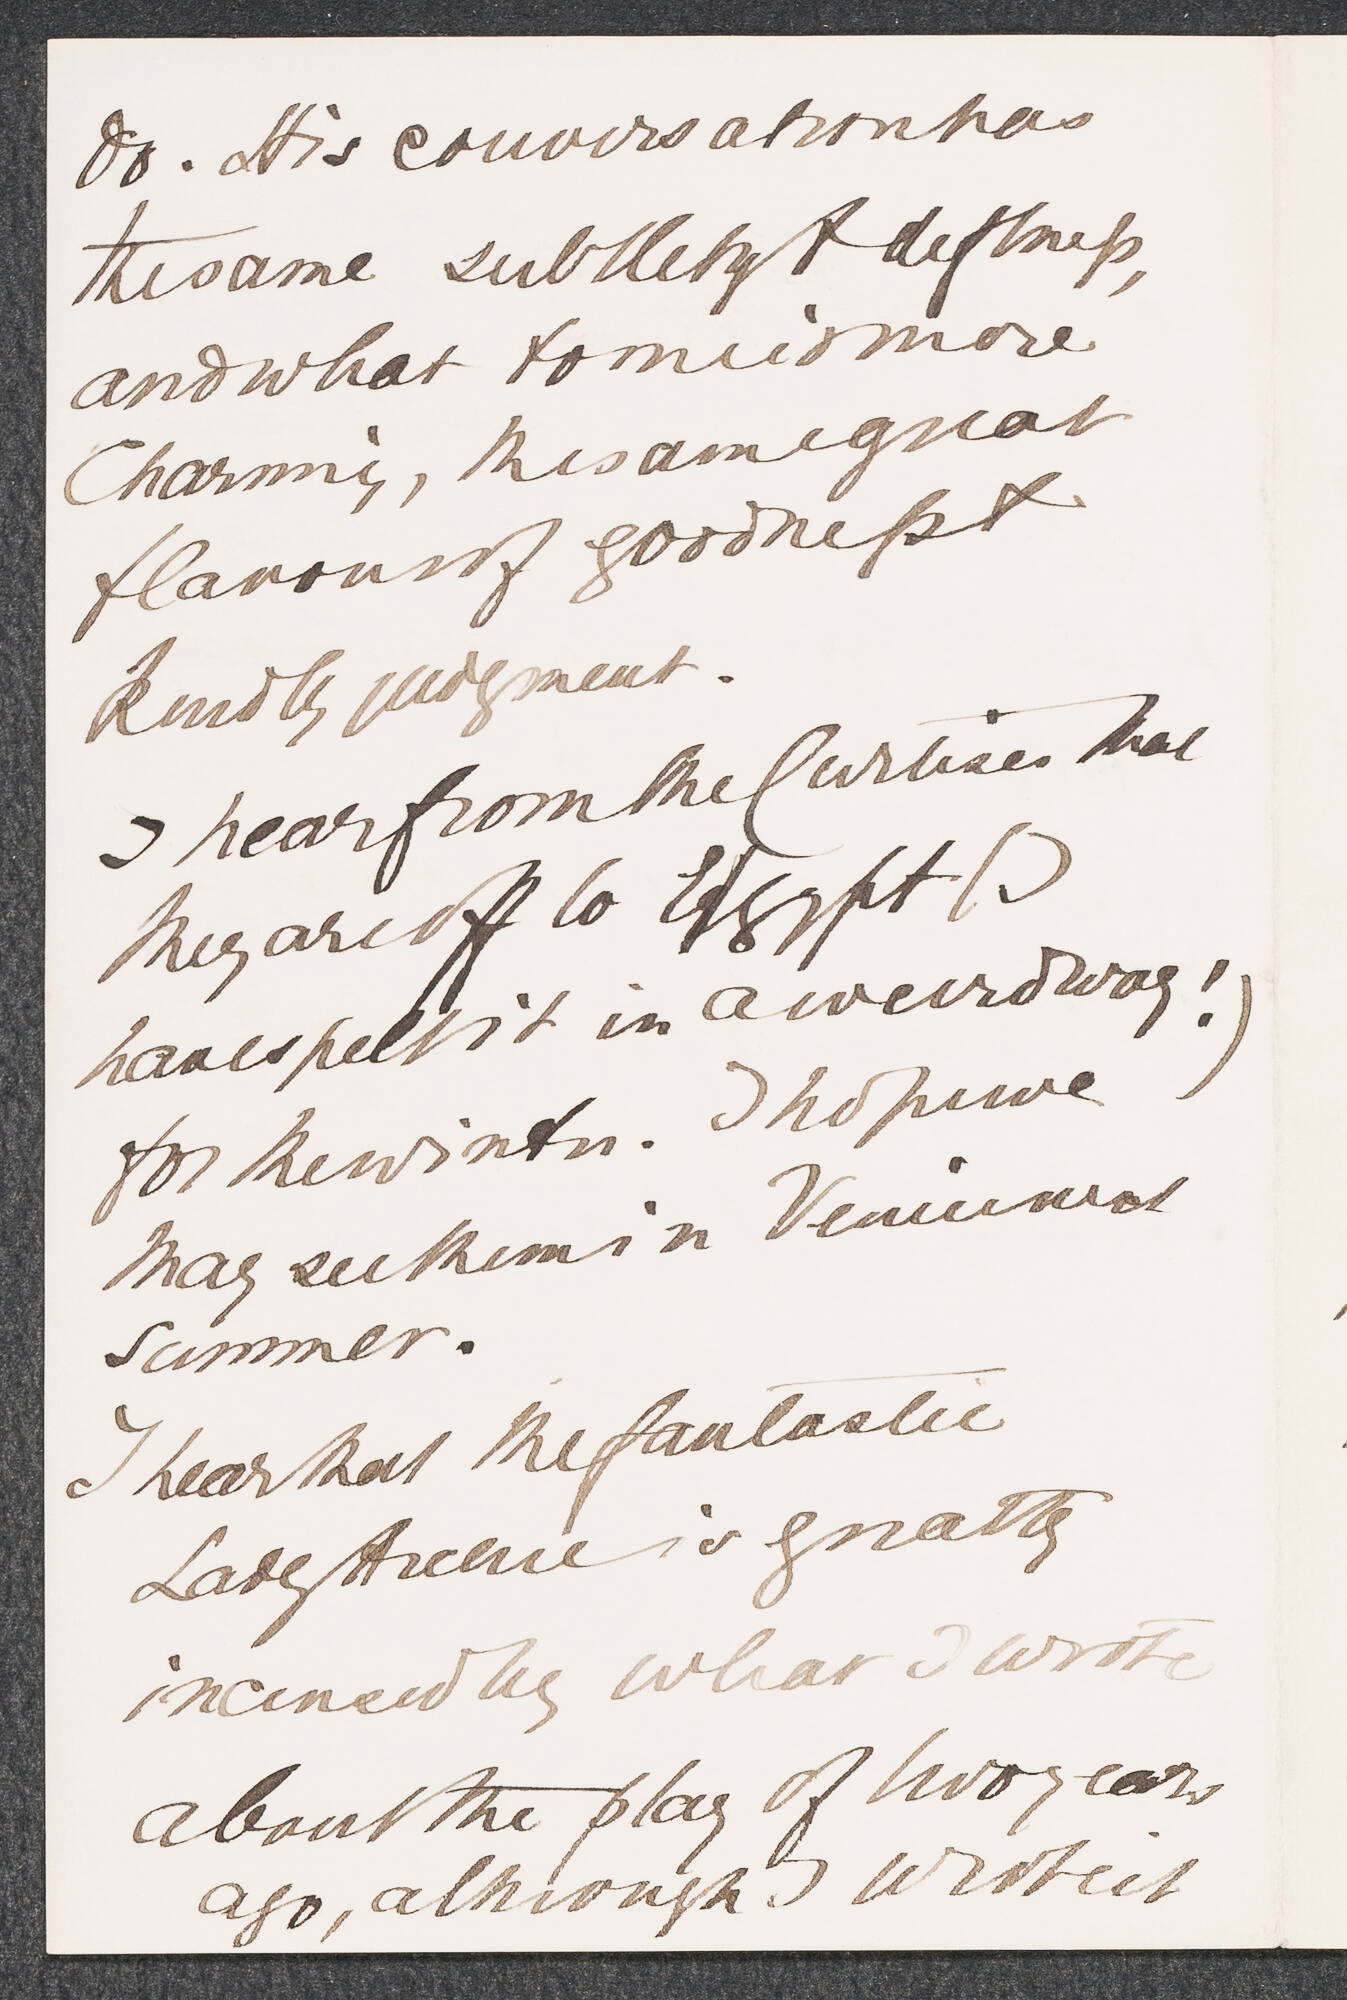 do. His conversation has
the same subtlety & deftness,
and what to me is more
Charming, the same great
flavour of goodness &
kindly judgment.
I hear from the Curtises that
they are off to Egypt (I
have spelt it in a weird way!)
for the winter. I hope we
may see them in Venice next
summer.
I hear that the fantastic
Lady Archie is greatly
incensed by what I wrote
about the play of two years
ago, although I wrote it